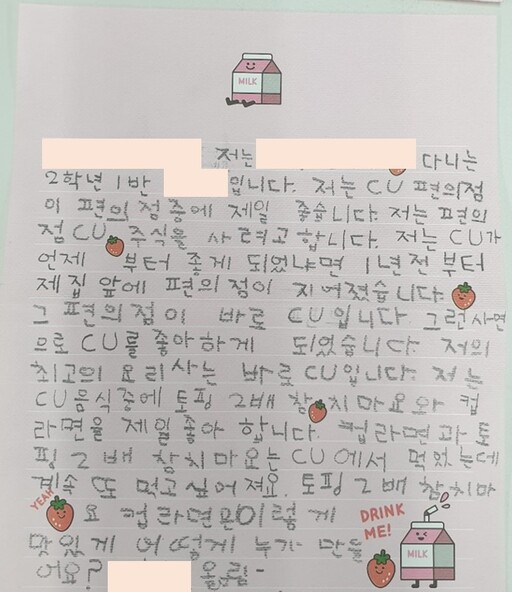 MILK
저는 다니는
2학년 1반 입니다. 저는 CU 편의점
이 편의점 중에 제일 좋습니다. 저는 편의
점 CU 주식을 사려고 합니다. 저는 CU가
언제 부터 좋게 되었냐면 1년전 부터
제 집 앞에 편의점이 지어졌습니다.
그 편의점이 바로 CU입니다. 그런 사연
으로 CU를 좋아하게 되었습니다. 저의
최고의 요리사는 바로 CU입니다. 저는
CU음식중에 토핑 2배 참치마요와 컵
라면을 제일좋아 합니다. 컵라면과 토
핑 2배 참치마요는 CU에서 먹었는데
계속 또 먹고 싶어져요. 토핑 2배 참치마
YEAH
요 컵라면은이렇게
DRINK ME!
MILK
맛있게 어떻게 누가 만들
어요? 올림-